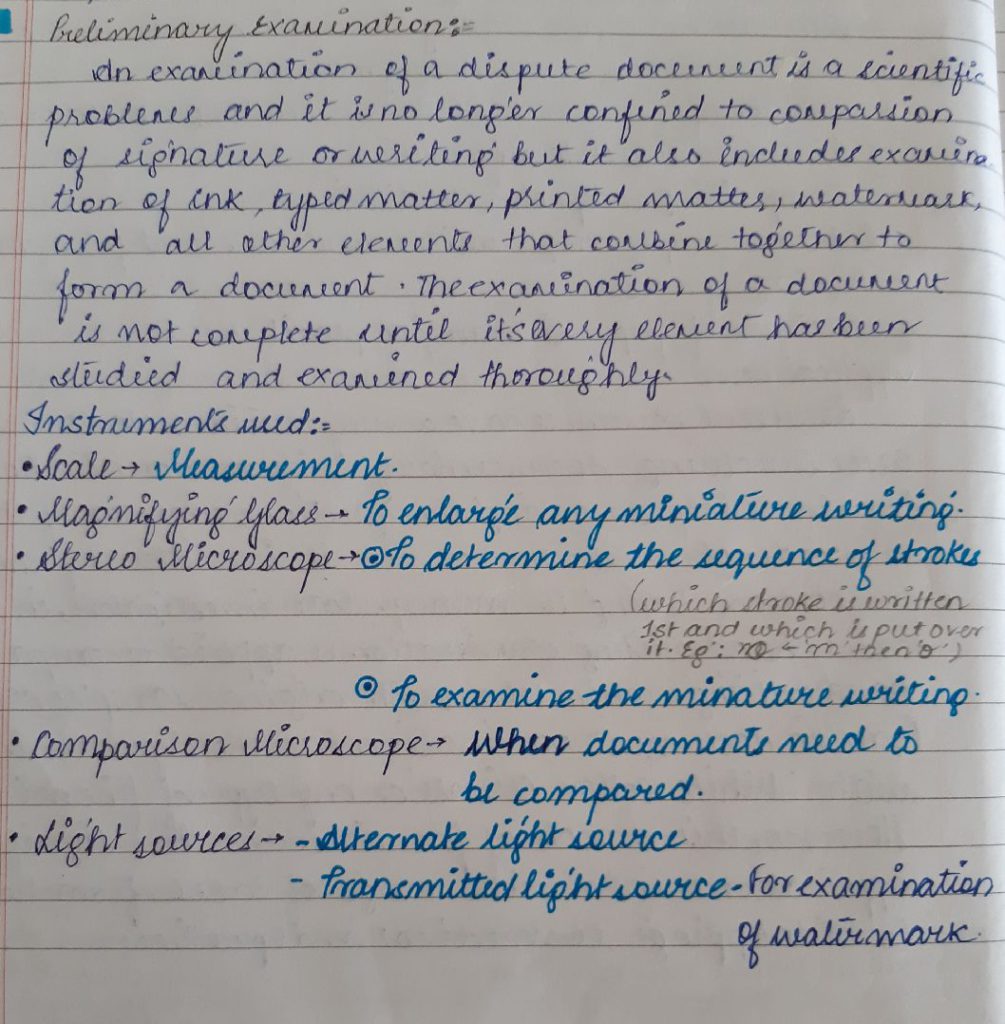 Preliminary Examination:=
An examination of a dispute document is a scientific
problems and it is no longer confined to comparsion
of signature or writing but it also includes examina
tion of ink, typed matter, printed matter, watermark,
and all other elements that combine together to
form a document. The examination of a document
is not complete until it's every element has been
studied and examined thoroughly.
Instruments used:=
• Scale → Measurement.
• Magnifying Glass → To enlarge any miniature writing.
• Stereo Microscope → ⊙ To determine the sequence of strokes
(which stroke is written
1st and which is put over
it. Eg: mo ← 'm' then 'o')
⊙ To examine the minature writing.
• Comparison Microscope → When documents need to
be compared.
• Light sources → - Alternate light source
- Transmitted light source - For examination
of watermark.